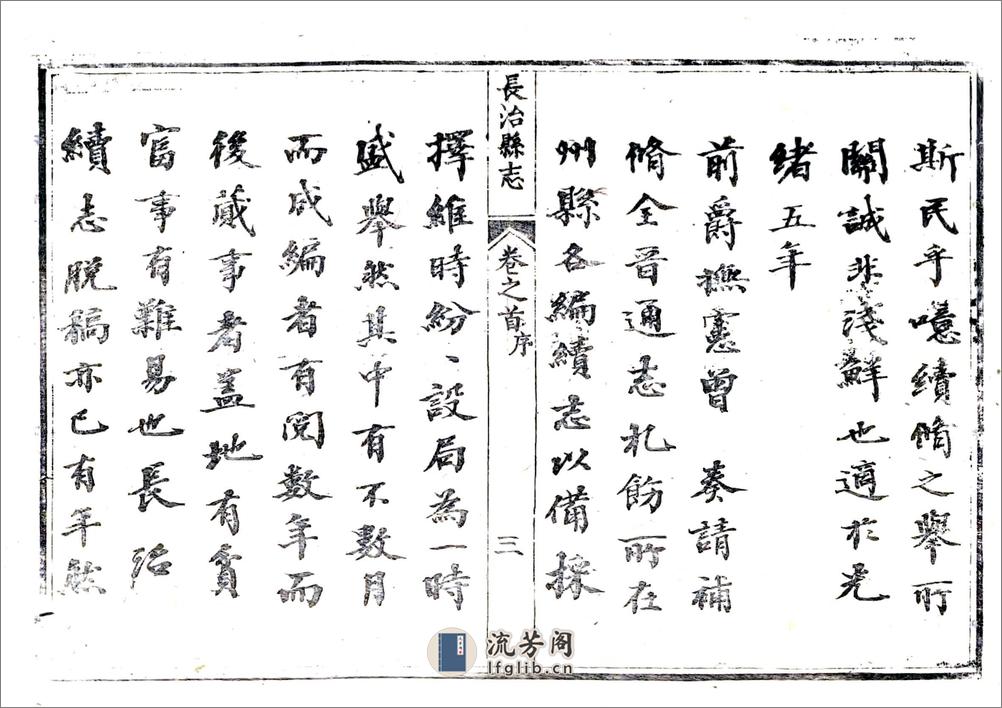 斯民乎噫續脩之舉所
關誠非淺鮮也適於光
緒五年
前爵撫憲曾 奏請補
脩全晉通志札飭所在
州縣各編續志以備採
長治縣志 卷之首 序 三
擇維時紛、設局為一時
盛舉然其中有不數月
而成編者有閱數年而
後蕆事者蓋地有貧
富事有難易也長治
續志脱稿亦已有年然
流芳阁
lfglib.cn